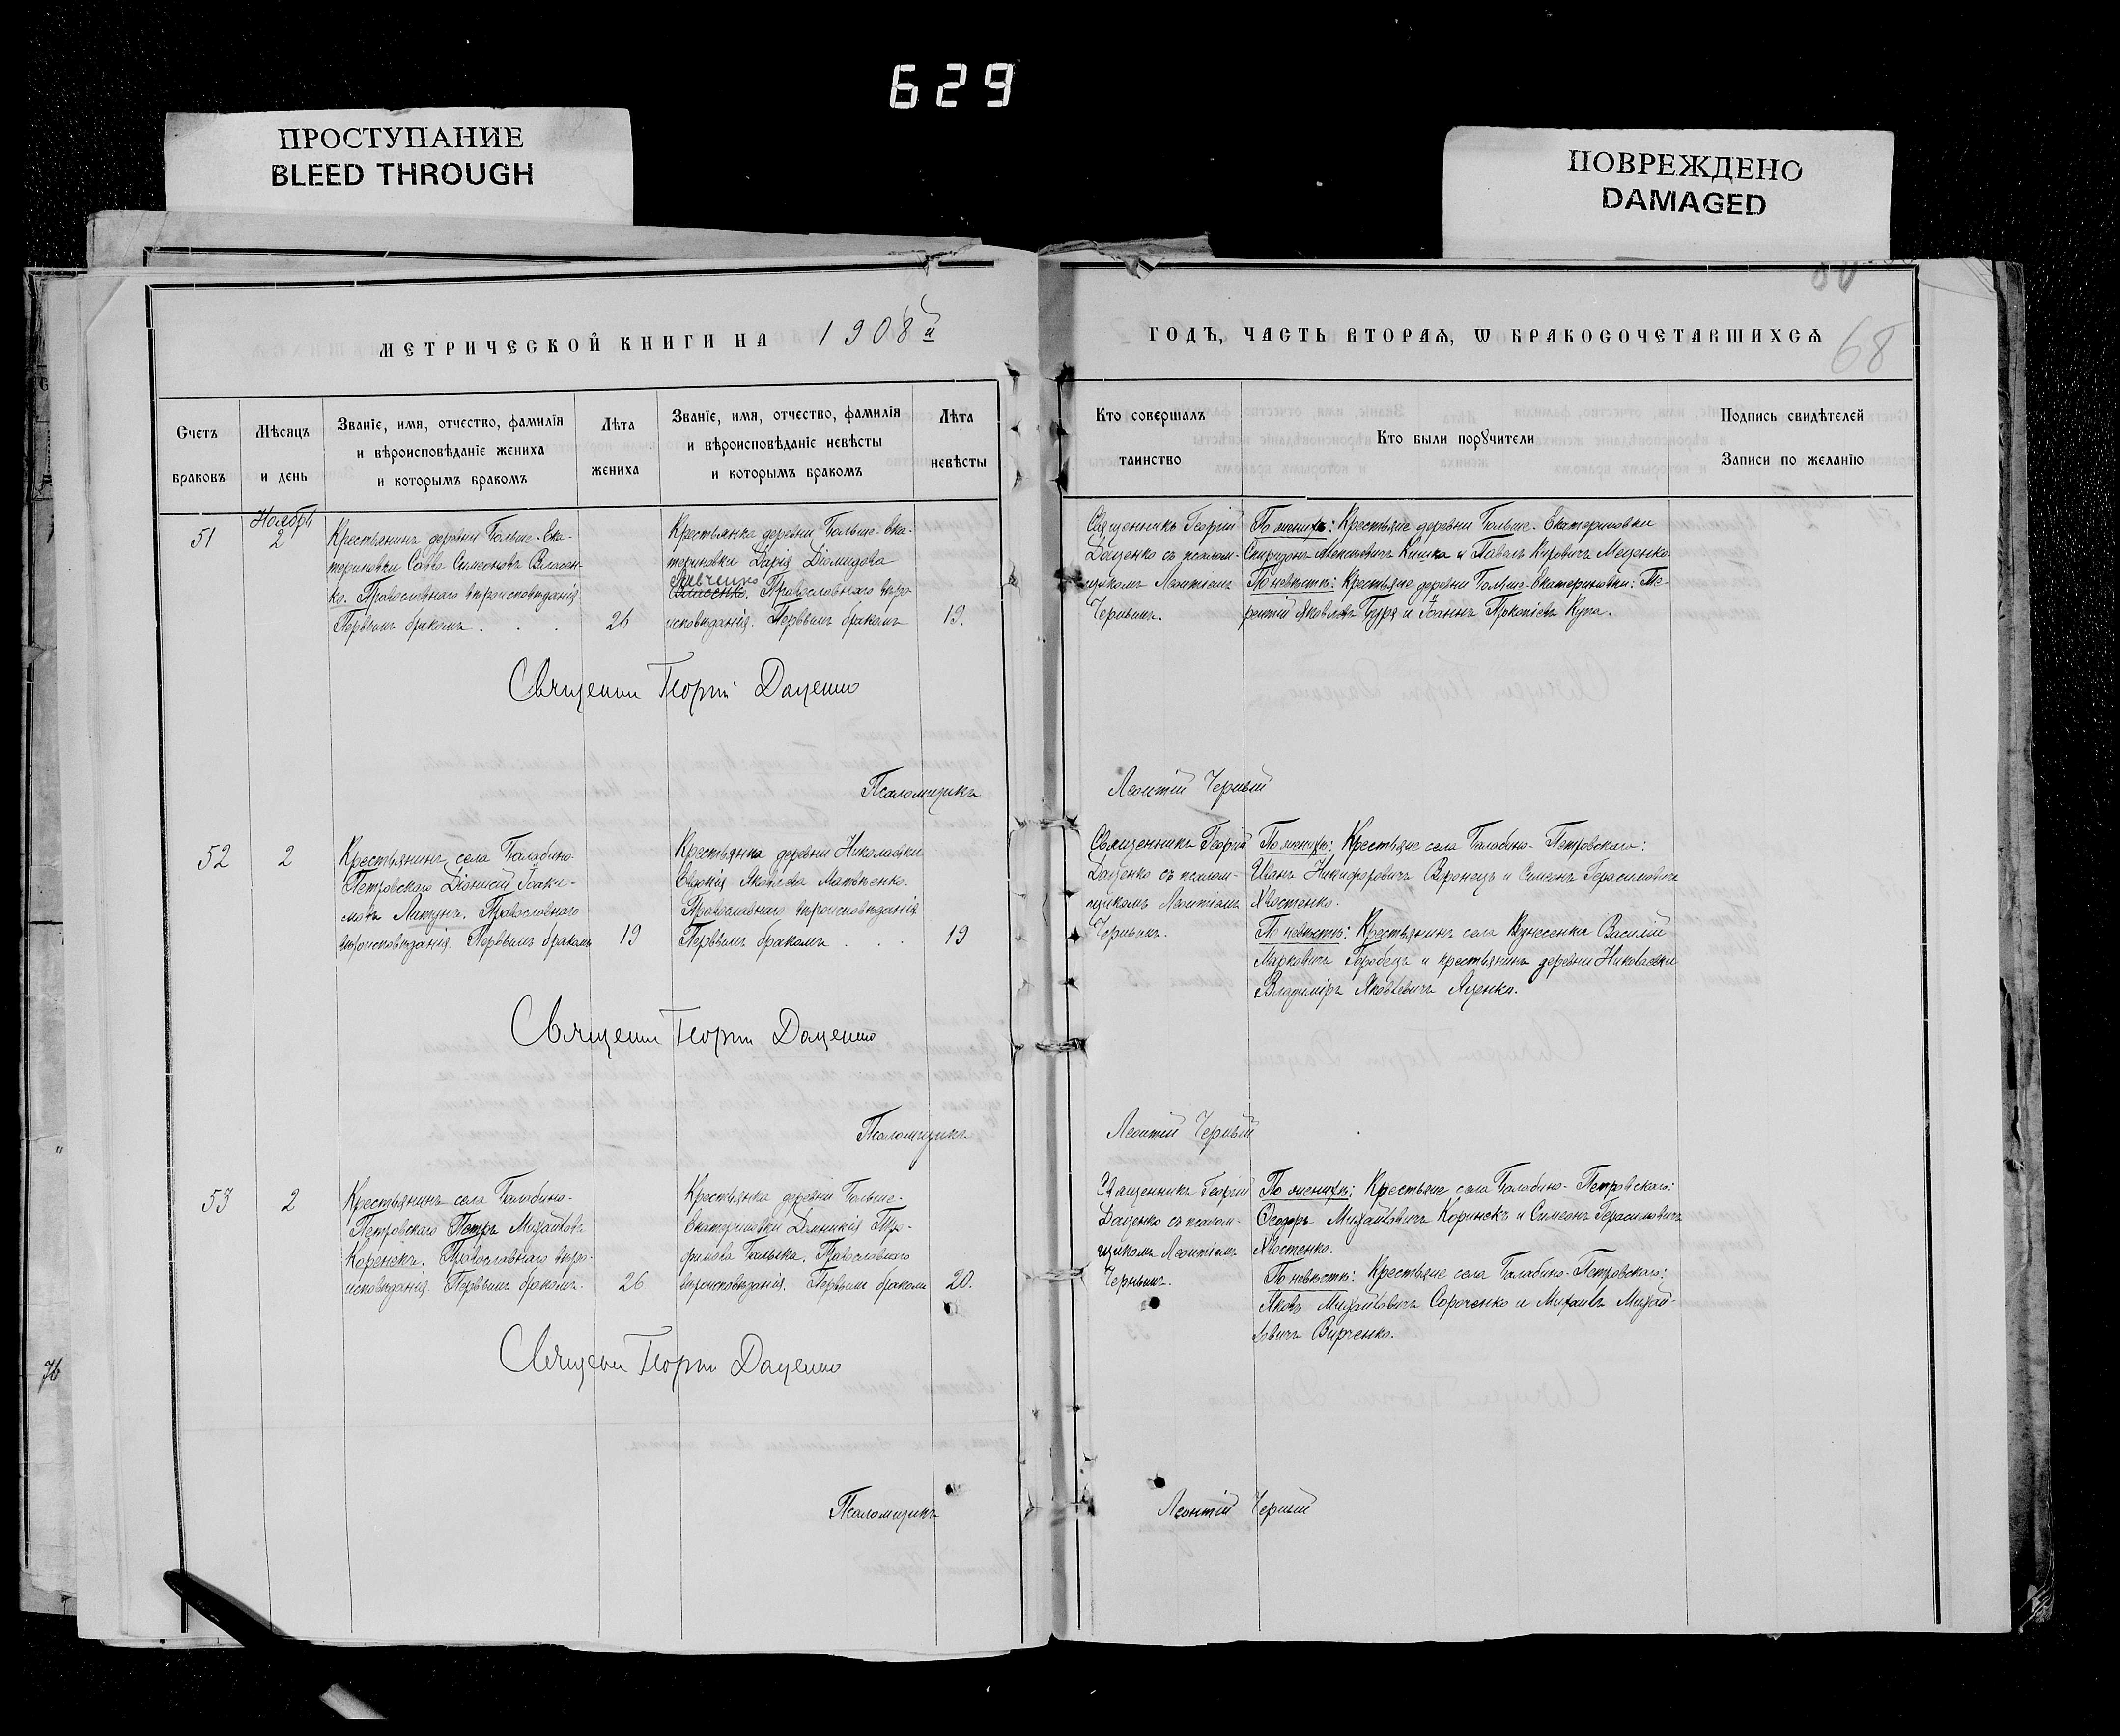 629
ПРОСТУПАНИЕ
BLEED THROUGH
ПОВРЕЖДЕНО
DAMAGED
МЕТРИЧЕСКОЙ КНИГИ НА 1908й
ГОДЪ, ЧАСТЬ ВТОРАѦ, Ѡ БРАКОСОЧЕТАВШИХСѦ
68
Счетъ браковъ
Мѣсяцъ и день
Званіе, имя, отчество, фамилія
и вѣроисповѣданіе жениха
и которымъ бракомъ
Лѣта жениха
Званіе, имя, отчество, фамилія
и вѣроисповѣданіе невѣсты
и которымъ бракомъ
Лѣта невѣсты
Кто совершалъ таинство
Кто были порꙋчители
Подпись свидѣтелей
Записи по желанію
Ноябрь
51
2
Крестьянинъ деревни Больше-Ека-
териновки Савва Симеоновъ Власен-
ко. Православнаго вѣроисповѣданія.
Первымъ бракомъ . . .
26
Крестьянка деревни Больше-Ека-
териновки Дарія Діомидова
Православнаго вѣро
исповѣданія. Первымъ бракомъ
19.
Священникъ Георгій
Даценко съ псалом-
щикомъ Леонтіемъ
Чернымъ.
По женихѣ: Крестьяне деревни Больше-Екатериновки
Спиридонъ Алексѣевичъ Кишка и Павелъ Меценко.
По невѣстѣ: Крестьяне деревни Больше-Екатериновки: Те-
рентій Яковлевъ Буря и Іоаннъ Прокопіевъ Купа.
Священник Георгій Даценко
Псаломщикъ
Леонтій Черный
52
2
Крестьянинъ села Балабино-
Петровскаго Діонисій Іоаки-
мовъ Латунъ. Православнаго
вѣроисповѣданія. Первымъ бракомъ
19
Крестьянка деревни Николаевки
Евдокія Яковлева Матвѣенко.
Православнаго вѣроисповѣданія
Первымъ бракомъ . . .
19
Священникъ Георгій
Даценко съ псалом-
щикомъ Леонтіемъ
Чернымъ.
По женихѣ: Крестьяне села Балабино-Петровскаго:
Иванъ Никифоровичъ Воронецъ и Симеонъ Герасимовичъ
Хвостенко.
По невѣстѣ: Крестьянинъ села Вознесенки Василій
Марковичъ Горобецъ и крестьянинъ деревни Николаевки
Владиміръ Яковлевичъ Яценко.
Священник Георгій Даценко
Псаломщикъ
Леонтій Черный
53
2
Крестьянинъ села Балабино-
Петровскаго Петръ Михайловъ
Коренекъ. Православнаго вѣро-
исповѣданія. Первымъ бракомъ.
26
Крестьянка деревни Больше-
Екатериновки Домникія Тро-
фимова Балыка. Православнаго
вѣроисповѣданія. Первымъ бракомъ
20.
Священникъ Георгій
Даценко съ псалом-
щикомъ Леонтіемъ
Чернымъ.
По женихѣ: Крестьяне села Балабино-Петровскаго:
Ѳеодоръ Михайловичъ Коринекъ и Симеонъ Герасимовичъ
Хвостенко.
По невѣстѣ: Крестьяне села Балабино-Петровскаго:
Яковъ Михайловичъ Сороченко и Михаилъ Михай-
ловичъ Вирченко.
Священник Георгій Даценко
Псаломщикъ
Леонтій Черный
76